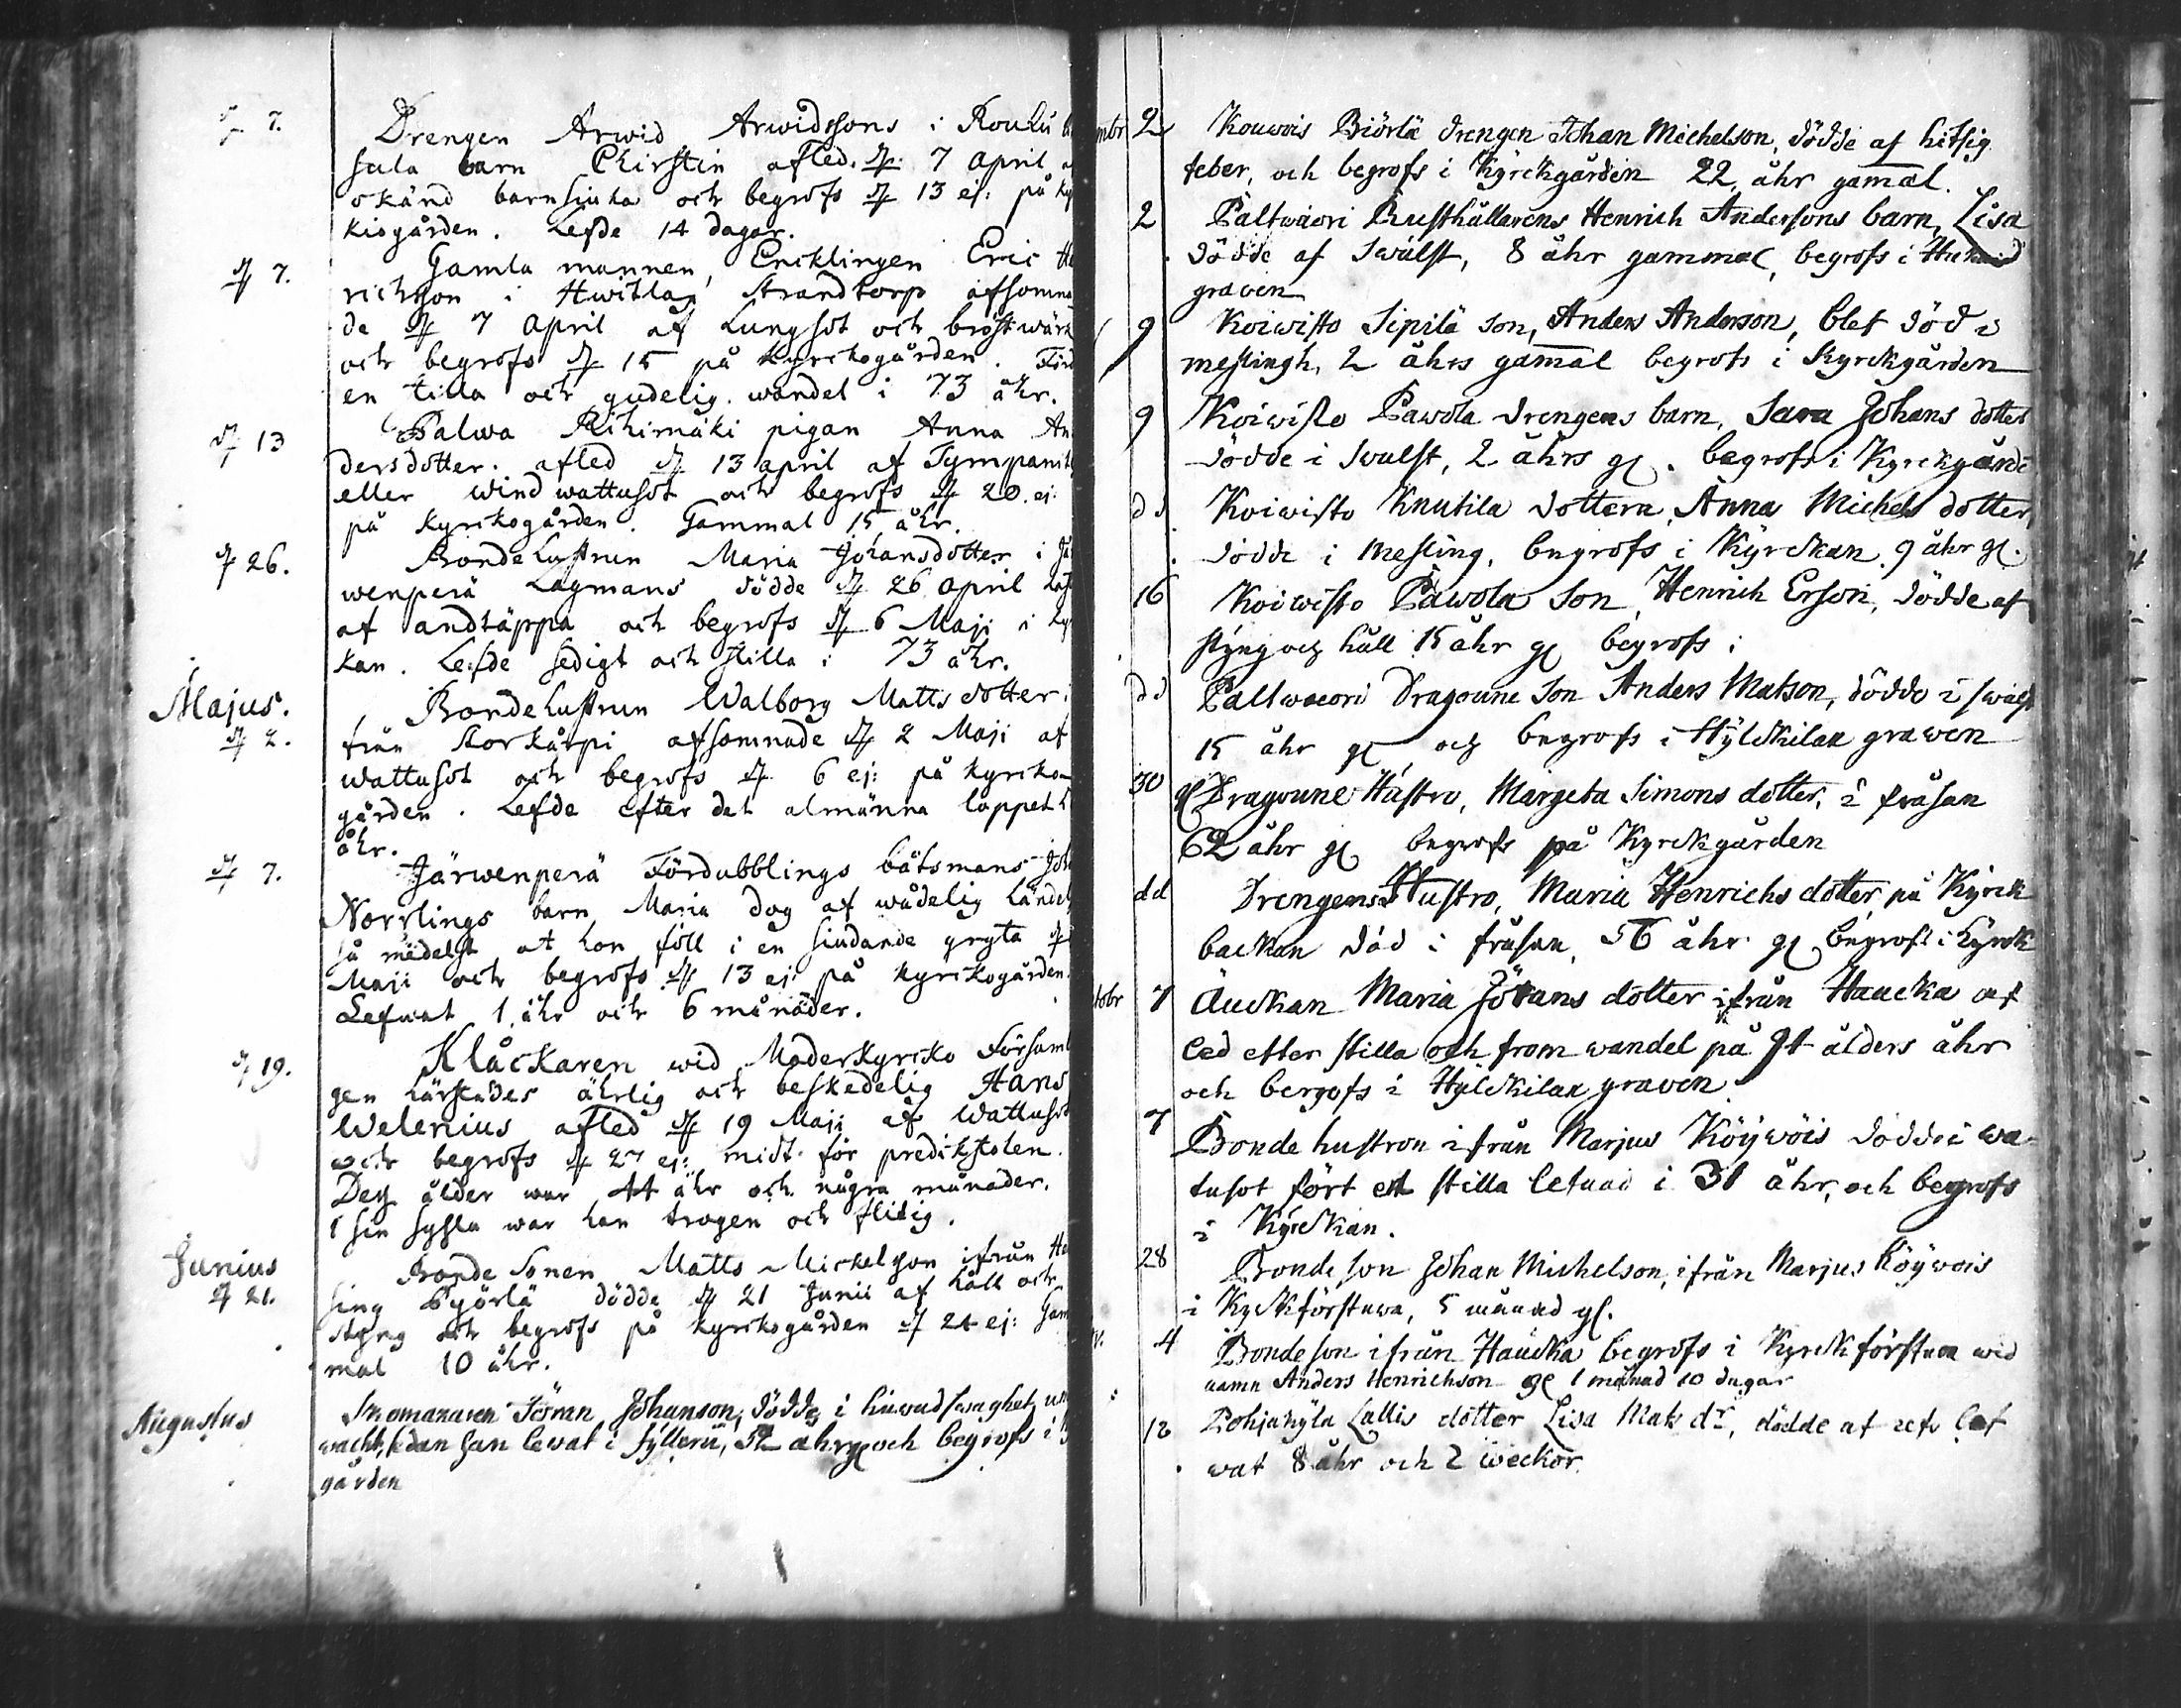 7. Drengen Arwid Arwidssons i Rouku
sula barn Chirstin afled. 7 April
okänd barnsiuka och begrofs 13 ej: på
kiogården. Lefde 14 dagar.
7. Gamla mannen, Encklingen Eric
richsson i Hwitlax Strandtorp afsomna
de 7 April af Lungsot och bröstwärk
och begrofs 15 på Kyrckogården.
en stilla och gudelig wandel i 73 åhr.
13 Palwa Rihimäki pigan Anna An
dersdotter. afled 13 april af Tympanit
eller wind wattusot och begrofs 20. ej:
på Kyrckogården. Gammal 15 åhr.
26. Bondehustrun Maria Johansdotter i Jä
wenperä Lagmans dödde 26 April
af andtäppa och begrofs 6 Maji i
kan. Lefde sedigt och stilla i 73 åhr.
Majus.
2. Bondehustrun Walborg Mattsdotter
från Storkårpi afsomnade 2 Maji af
wattusot och begrofs 6 ej: på Kyrcko-
gården. Lefde efter det almänna loppet
åhr.
7. Järwenperä Fördubblings båtsmans
Norrlings barn Maria dog af wådelig händel
så medelst at hon föll i en siudande gryta
Maji och begrofs 13 ej: på kyrckogården.
Lefwat 1 åhr och 6 månader.
19. Klåckaren wid Moderkyrcko Församl
gen härstädes ährlig och beskedelig Hans
Welenius afled 19 Maji af Wattusot
och begrofs 27 ej: midt för predikstolen.
Dess ålder war 44 åhr och några månader.
I sin syssla war han trogen och flitig.
Junius
21. Bonde Sonen Matts Mickelsson ifrån
sing Byörlä dödde 21 Junii af håll och
styng och begrofs på kyrckogården 24 ej: Gam
mal 10 åhr.
Augustus Skomakaren Jöran Johanson, dödde i hufwudswaghet
sedan han lewat i fylleri, 52 åhr och begrofs i
gården
mbr 2 Kouwois Biörlä drengen Johan Michelson, dödde af hitsig
feber, och begrofs i Kyrckgården 22 åhr gamal.
2 Paltwuori Rusthållarens Henrich Andersons barn, Lisa
dödde af Swulst, 8 åhr gammal, begrofs i
graven
9 Koiwisto Sipilä son, Anders Anderson, blef död i
meslingh, 2 åhrs gamal begrofs i Kyrckgården
9 Koiwisto Pawola drengens barn, Sara Johans dotter
dödde i Swulst, 2 åhrs gl. begrofs i Kyrckgård
dd Koiwisto Knutila dottern, Anna Michels dotter,
dödde i Mesling, begrofs i Kyrckan 9 åhr gl.
16 Koiwisto Pawola Son, Henrich Erson, dödde af
styng och håll 15 åhr gl begrofs i
dd Paltwuori Dragoune Son Anders Matson, dödde i swulst
15 åhr gl och begrofs i Hylckilax grawen
30 gl Dragoune Hustro, Margeta Simons dotter, i fråsan
62 åhr gl begrofs på Kyrckgården
dd Drengens Hustro, Maria Henrichs dotter på Kyrck
backan död i fråsan, 56 åhr gl begrofs i Kyrck
tobr 7 Änckan Maria Jörans dotter ifrån Haucka af
led efter stilla och from wandel på 91 ålders åhr
och bergofs i Hylckilax graven
7 Bonde hustron ifrån Marjus Köywöis dödde i wa
tusot fört ett stilla lefwad i 31 åhr, och begrofs
i Kyrckan.
28 Bonde son Johan Michelson, ifrån Marjus Köywois
i Kyrckförstuwa, 5 månad gl.
4 Bondeson ifrån Haucka begrofs i Kyrckförstuva wid
namn Anders Henrichson gl 1 månad 10 dagar
12 Pohjakylä Lallis dotter Lisa Mats dr, dödde af lef
wat 8 åhr och 2 weckor.